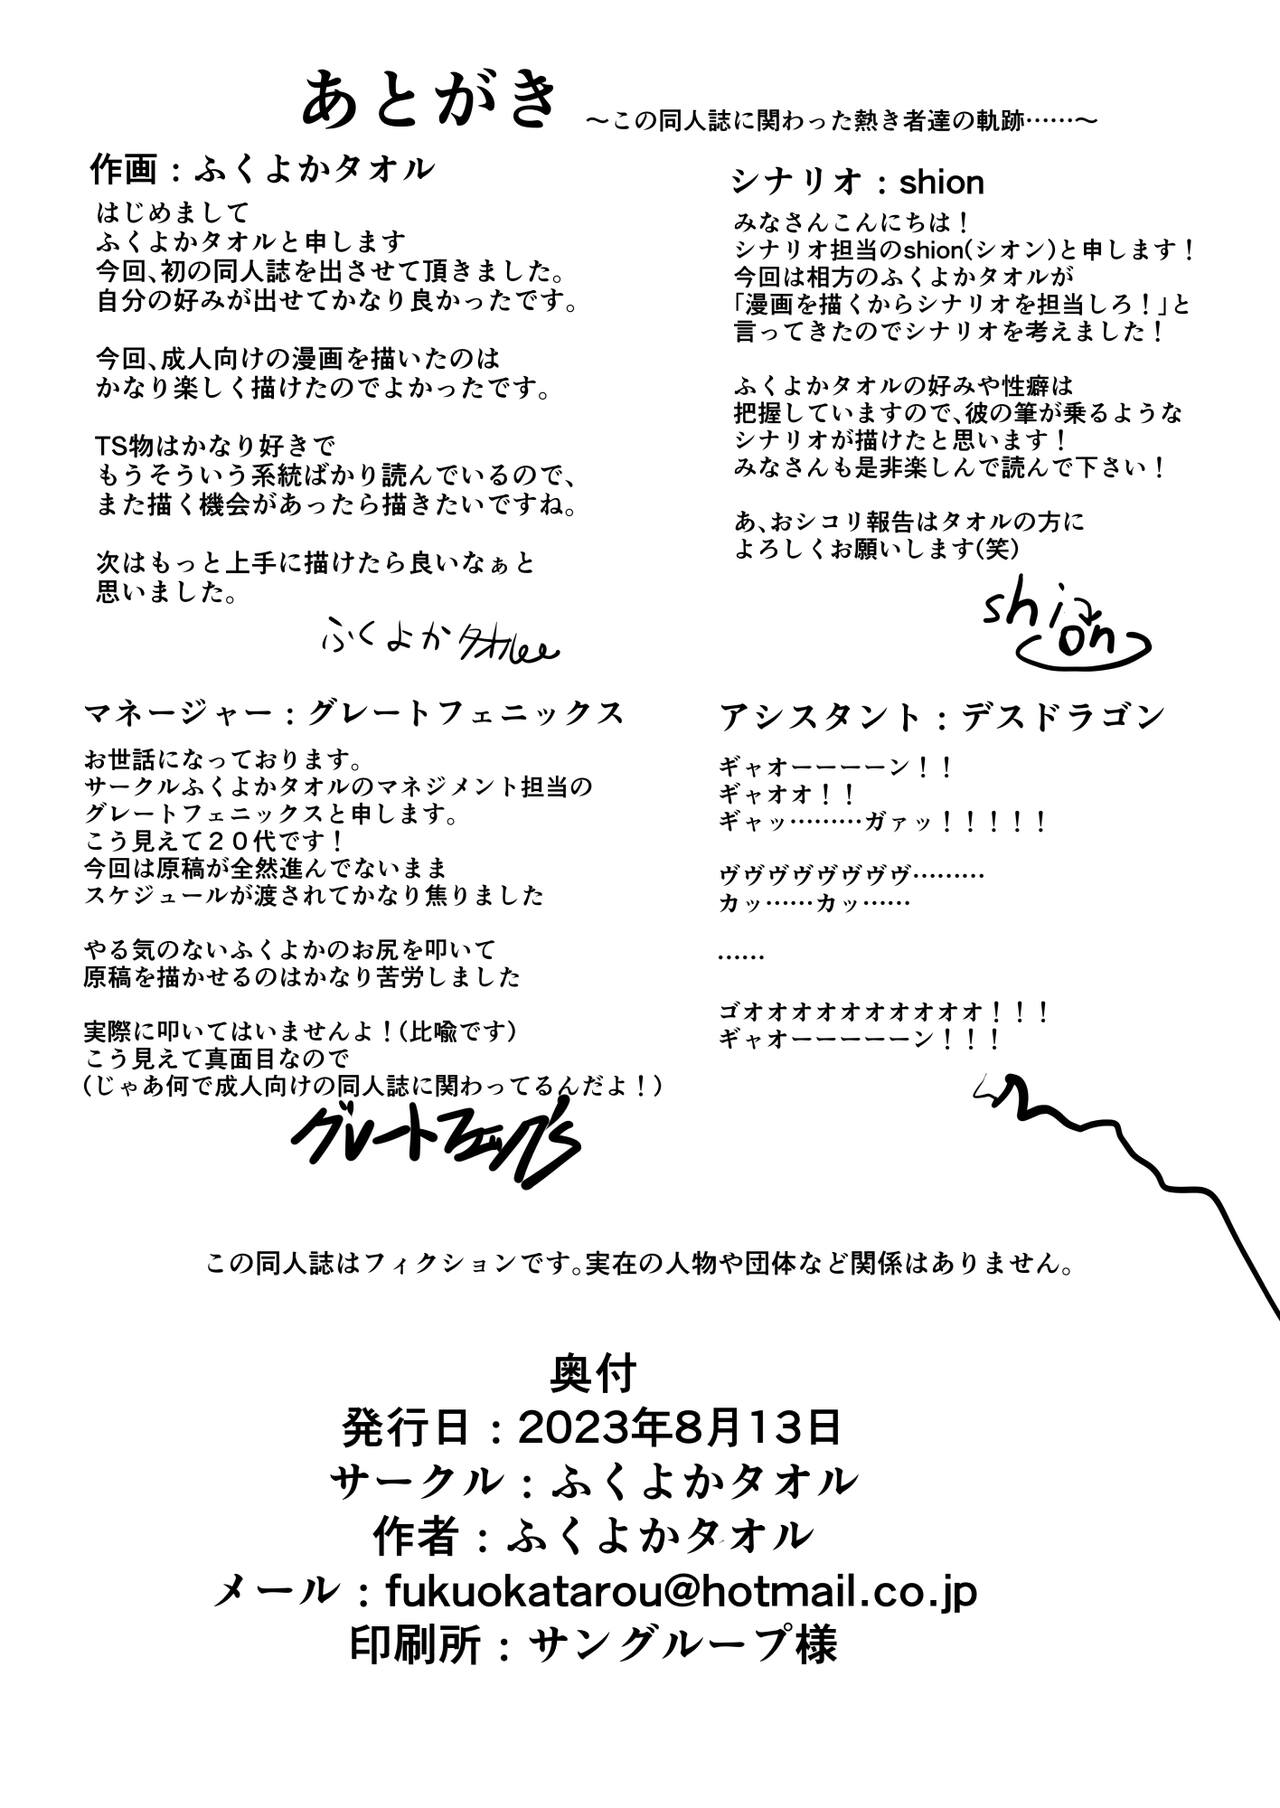 あとがき ～この同人誌に関わった熱き者達の軌跡……～
作画：ふくよかタオル
はじめまして
ふくよかタオルと申します
今回、初の同人誌を出させて頂きました。
自分の好みが出せてかなり良かったです。
今回、成人向けの漫画を描いたのは
かなり楽しく描けたのでよかったです。
TS物はかなり好きで
もうそういう系統ばかり読んでいるので、
また描く機会があったら描きたいですね。
次はもっと上手に描けたら良いなぁと
思いました。
ふくよかタオル
シナリオ：shion
みなさんこんにちは！
シナリオ担当のshion(シオン)と申します！
今回は相方のふくよかタオルが
「漫画を描くからシナリオを担当しろ！」と
言ってきたのでシナリオを考えました！
ふくよかタオルの好みや性癖は
把握していますので、彼の筆が乗るような
シナリオが描けたと思います！
みなさんも是非楽しんで読んで下さい！
あ、おシコリ報告はタオルの方に
よろしくお願いします(笑)
shion
マネージャー：グレートフェニックス
お世話になっております。
サークルふくよかタオルのマネジメント担当の
グレートフェニックスと申します。
こう見えて２０代です！
今回は原稿が全然進んでないまま
スケジュールが渡されてかなり焦りました
やる気のないふくよかのお尻を叩いて
原稿を描かせるのはかなり苦労しました
実際に叩いてはいませんよ！(比喩です)
こう見えて真面目なので
(じゃあ何で成人向けの同人誌に関わってるんだよ！)
アシスタント：デスドラゴン
ギャオーーーーン！！
ギャオオ！！
ギャッ………ガァッ！！！！！
ヴヴヴヴヴヴヴヴ………
カッ……カッ……
……
ゴオオオオオオオオオオ！！！
ギャオーーーーーン！！！
この同人誌はフィクションです。実在の人物や団体など関係はありません。
奥付
発行日：2023年8月13日
サークル：ふくよかタオル
作者：ふくよかタオル
メール：fukuokatarou@hotmail.co.jp
印刷所：サングループ様